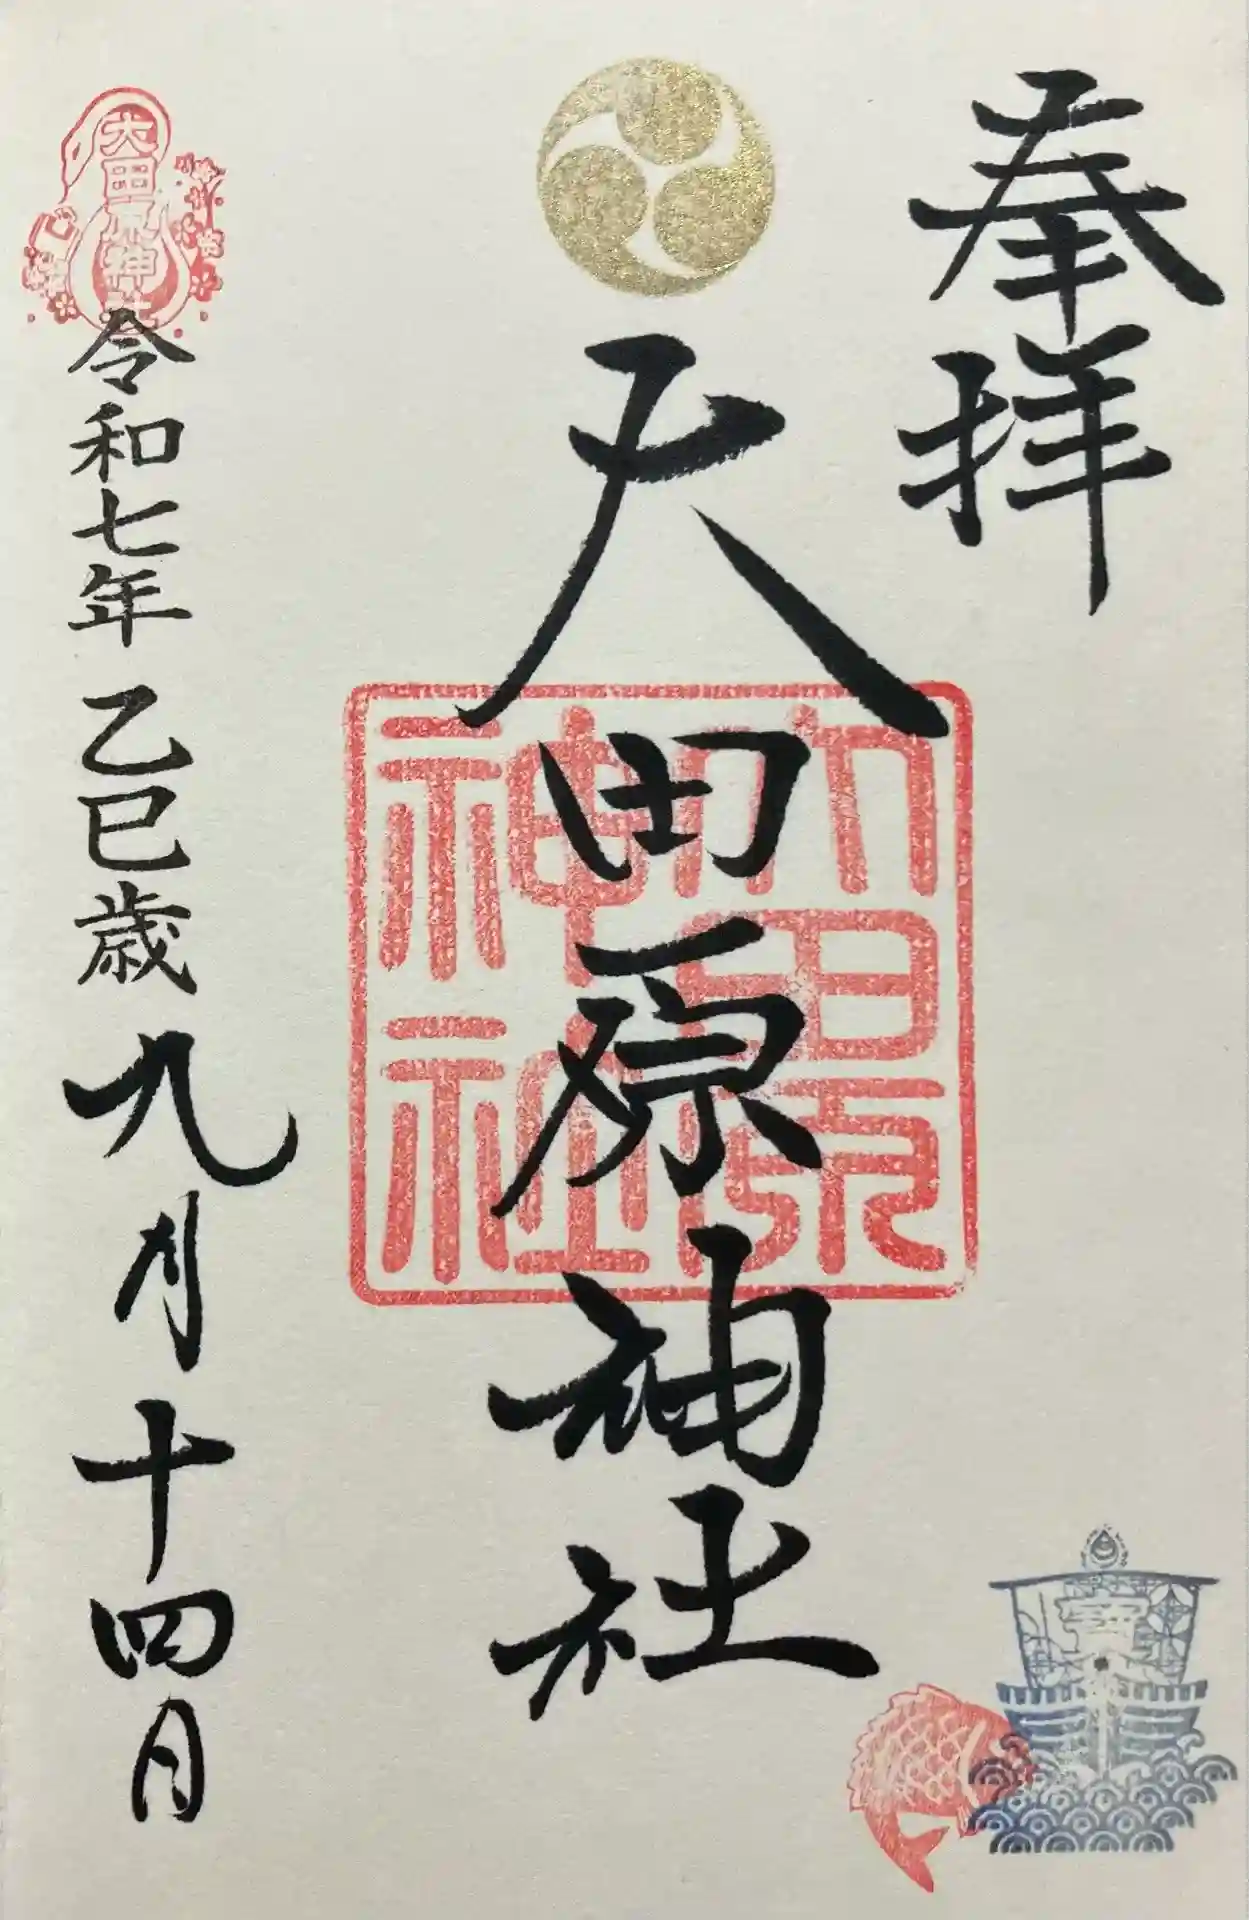 奉拝
大田原神社
大田原神社
令和七年 乙巳歳 九月十四日
大田原神社